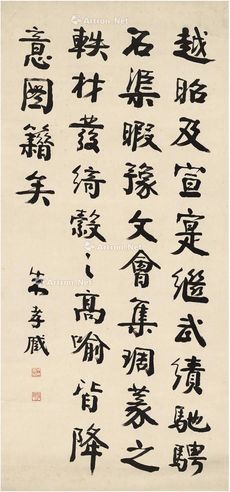 越昭及宣寔繼武績馳騁
石渠暇豫文會集琱篆之
軼材發綺縠之高喻皆降
意圖籍矣
朱孝臧
Artron.Net
Artron.Net